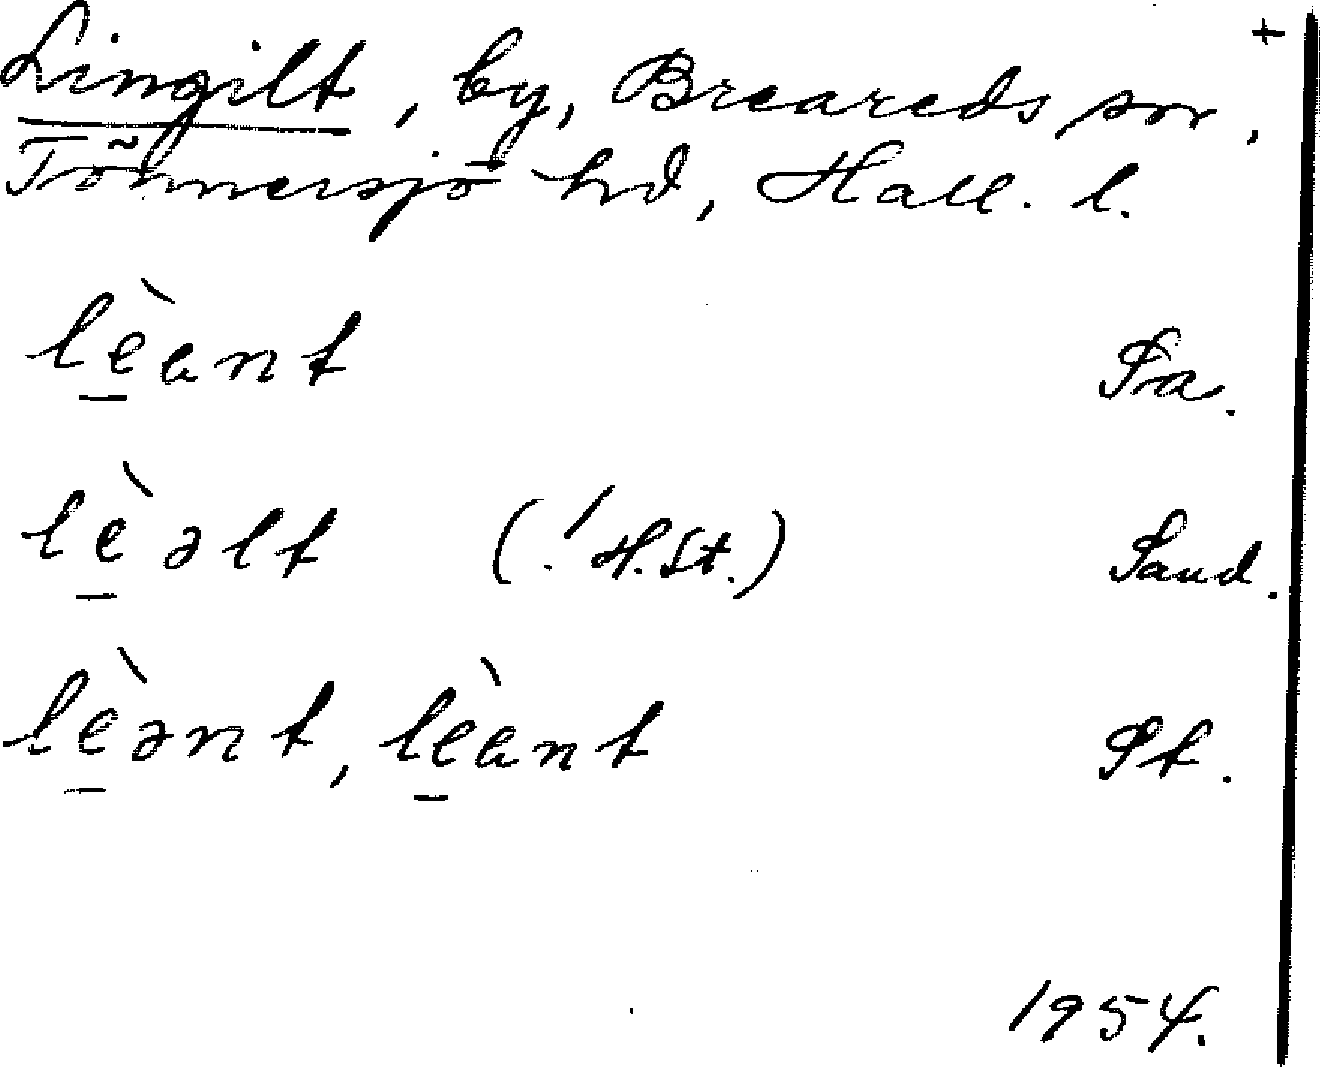 +
Lingilt, by, Breareds snr,
Tönnersjö hd, Hall. l.
lèant Sa.
lèəlt (! H.St.) Sand.
lèənt, lèant St.
1954.